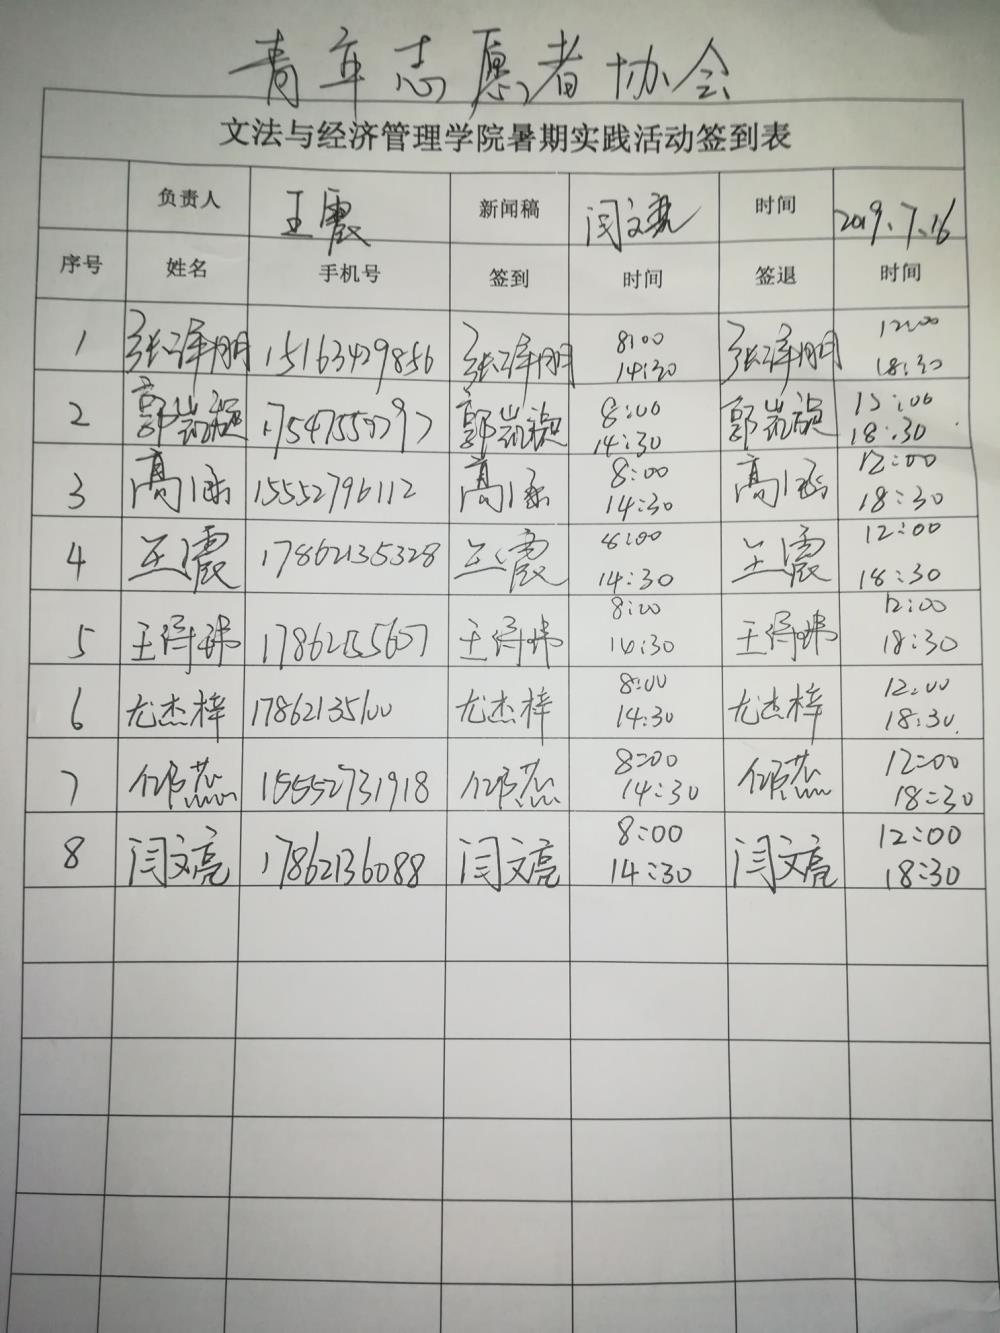 青年志愿者协会
文法与经济管理学院暑期实践活动签到表
负责人 王震 新闻稿 闫文亮 时间 2019.7.16
序号 姓名 手机号 签到 时间 签退 时间
1 张泽朋 15163429856 张泽朋 8:00 14:30 张泽朋 12:00 18:30
2 郭凯 郭凯 8:00 14:30 郭凯 12:00 18:30
3 高涵 15552796112 高涵 8:00 14:30 高涵 12:00 18:30
4 王震 17862135328 王震 8:00 14:30 王震 12:00 18:30
5 王 王 8:00 14:30 王 12:00 18:30
6 尤杰梓 17862135100 尤杰梓 8:00 14:30 尤杰梓 12:00 18:30
7 15552731918 8:00 14:30 12:00 18:30
8 闫文亮 17862136088 闫文亮 8:00 14:30 闫文亮 12:00 18:30